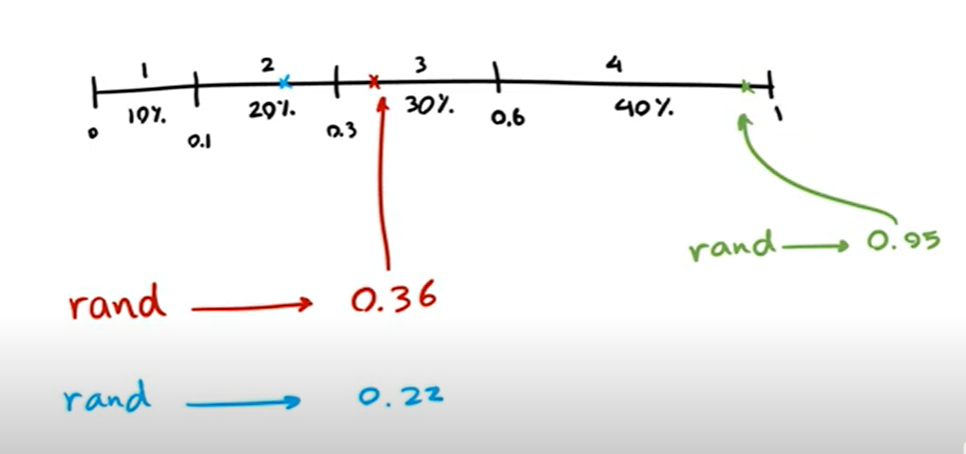 1 2 3 4
10% 20% 30% 40%
0 0.1 0.3 0.6 1
rand → 0.95
rand → 0.36
rand → 0.22